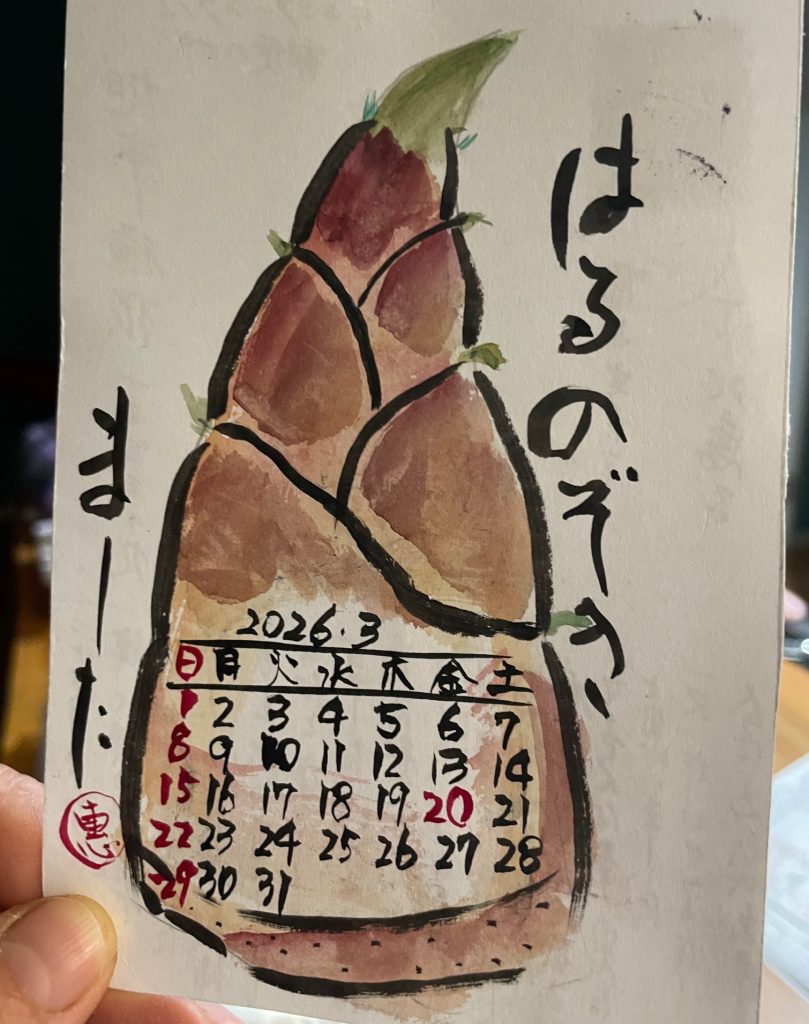 はるのぞき
まーた
恵
2026.3
日 月 火 水 木 金 土
1 2 3 4 5 6 7
8 9 10 11 12 13 14
15 16 17 18 19 20 21
22 23 24 25 26 27 28
29 30 31